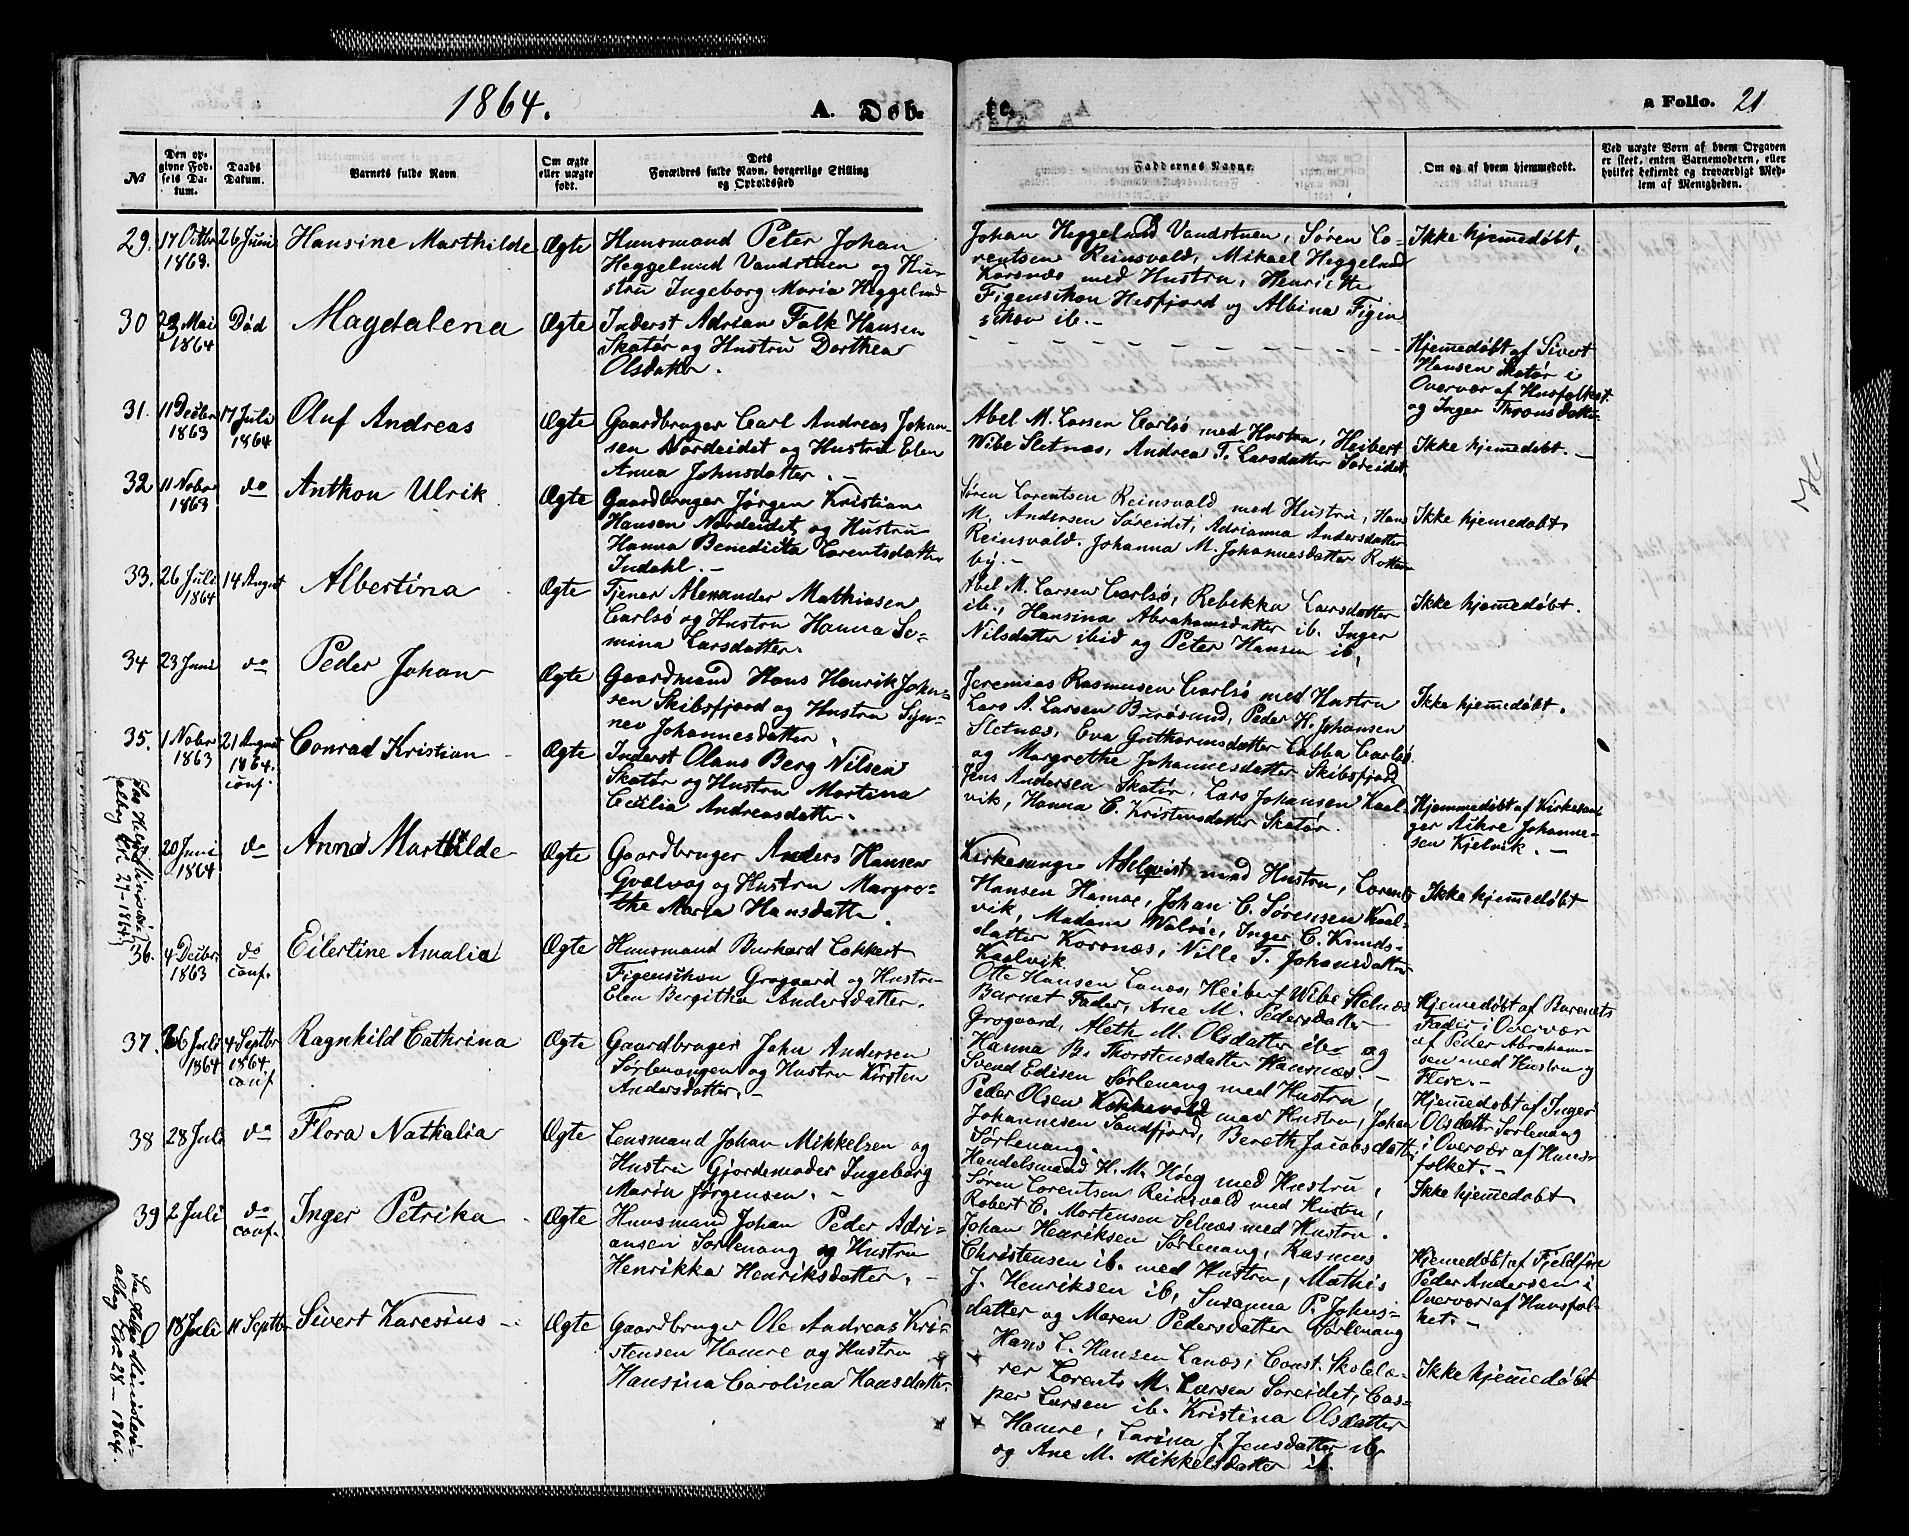 1864.
A. Døb-
te.
a Folio. 21
№
Den op-
givne Fød-
sels Da-
tum.
Daabs
Datum.
Barnets fulde Navn
Om ægte
eller uægte
født.
Dets
Forældres fulde Navn, borgerlige Stilling
og Opholdssted
Faddernes Navne.
Om og af hvem hjemmedøbt.
Ved uægte Børn af hvem Opgaven
er skeet, enten Barnemoderen, eller
hvilket bekjendt og troværdigt Med-
lem af Menigheden.
29. 17 Octbr 1863. 26 Juni Hansine Marthilde Ægte
Huusmand Peter Johan
Heggelund Vandstuen og Hu-
stru Ingeborg Maria Heggelund
Johan Heggelund Vandstuen, Søren Lo-
rentsen Reinsvold, Mikael Heggelund
Korsnæs med Hustru, Henriette
Figenschou Hesfjord og Albina Figen
schou ib.-
Ikke hjemmedøbt,
30 23 Mai 1864 Død Magdalena Ægte
Inderst Adrian Falk Hansen
Skatør og Hustru Dorthea
Olsdatter.
Hjemmedøbt af Sivert
Hansen Skatør i
Overvær af Husfolket
og Inger Thronsdatter
31. 11 Decbr 1863 17 Juli 1864 Oluf Andreas Ægte
Gaardbruger Carl Andreas Johan-
sen Nordeidet og Hustru Elen
Anna Johnsdatter. -
Abel M. Larsen Carlsø med Hustru, Heibert
Wibe Sletnæs, Andrea T. Larsdatter Søreidet.
Ikke hjemmedøbt. -
32 11 Novbr 1863 do Anthon Ulrik Ægte
Gaardbruger Jørgen Kristian
Hansen Nordeidet og Hustru
Hanna Benedicta Lorentsdatter
Indahl. -
Søren Lorentsen Reinsvold med Hustru, Hans
M. Andersen Søreidet, Adrianna Andersdatter
Reinsvold. Johanna M. Johannesdatter Rotten-
by. -
Ikke hjemmedøbt,
33. 26 Juli 1864 14 August Albertina Ægte
Tjener Alexander Mathiasen
Carlsø og Hustru Hanna Se-
mina Larsdatter.
Abel M. Larsen Carlsø, Rebekka Larsdatter
ib., Hansina Abrahamsdatter ib. Inger
Nilsdatter ibid og Peter Hansen ib,
Ikke hjemmedøbt.
34 23 Juni do Peder Johan Ægte
Gaardmand Hans Henrik John-
sen Skibsfjord og Hustru Syn-
nev Johannesdatter,
Jeremias Rasmusen Carlsø med Hustru
Lars A. Larsen Burøsund, Peder H. Johansen
Sletnæs, Eva Guthormsdatter Labba Carlsø
og Margrethe Johannesdatter Skibsfjord
Ikke hjemmedøbt.
35. 1 Novbr 1863 21 August 1864. conf. Conrad Kristian Ægte
Inderst Olaus Berg Nilsen
Skatør og Hustru Martina
Cecilia Andreasdatter.
Jens Andersen Skatør, Lars Johansen Kaal-
vik, Hanna C. Kristensdatter Skatør.
Hjemmedøbt af Kirkesan-
ger Johanne-
sen Kjelvik. -
20 Juni 1864 do Anna Marthilde Ægte
Gaardbruger Anders Hansen
Grølvog og Hustru Margre-
the Maria Hansdatter.
Kirkesanger med Hustru, Lorents
Hansen Hamre, Johan C. Sørensen Kaal-
vik, Madam Walsøe, Inger C. Knuds-
datter Korsnæs, Nille T. Johansdatter
Kaalvik
Ikke hjemmedøbt
36. 4 Decbr 1863 do conf. Eilertine Amalia Ægte
Huusmand Burhard Lokkert
Figenschou Grogaard og Hustru
Elen Bergitha Andersdatter.
Otte Hansen Lanæs, Heibert Wibe Sletnæs
Barnet Fader, Ane M. Pedersdatter
Grogaard, Aleth M. Olsdatter ib og
Hanna B. Thorstensdatter Hansnæs. -
Hjemmedøbt af Barnets
Fader i Overvær
af Peder Abraham-
sen med Hustru og
Flere. -
37. 26 Juli 1864 4 Septbr 1864. conf Ragnhild Cathrina Ægte
Gaardbruger John Andersen
Sørlenangen og Hustru Kirsten
Andersdatter.
Svend Edisen Sørlenang med Hustru,
Peder Olsen Kokkevold med Hustru, Johan
Johannesen Sandfjord, Bereth Jacobsdatter
Sørlenang.
Hjemmedøbt af Inger
Olsdatter Sørlenang
i Overvær af Huus-
folket. -
38 28 Juli do Flora Nathalia Ægte
Lensmand Johan Mikkelsen og
Hustru Gjordemoder Ingeborg
Maria Jørgensen. -
Handelsmand H. M. Høeg med Hustru,
Søren Lorentsen Reinsvold med Hustru,
Robert C. Mortensen Selnæs med Hustru.
Ikke hjemmedøbt
39 2 Juli do conf. Inger Petrika Ægte
Huusmand Johan Peder Adri-
ansen Sørlenang og Hustru
Henrikka Henriksdatter. -
Johan Henriksen Sørlenang, Rasmus
Christensen ib. med Hustru, Mathis
J. Henriksen ib, Susanna P. Johns-
datter og Maren Pedersdatter Sørlenang
Hjemmedøbt af Fjeldfin
Peder Andersen i
Overvær af Huusfol-
ket. -
18 Juli 11 Septbr Sivert Karesius Ægte
Gaardbruger Ole Andreas Kri-
stensen Hamre og Hustru
Hansina Carolina Hansdatter.
Hans L. Hansen Lanæs, Const. Skolelæ-
rer Lorents M. Larsen Søreidet, Cas-
per Larsen ib. Kristina Olsdatter
Hamre, Larina J. Jensdatter ib
og Ane M. Mikkelsdatter ib.
Ikke hjemmedøbt